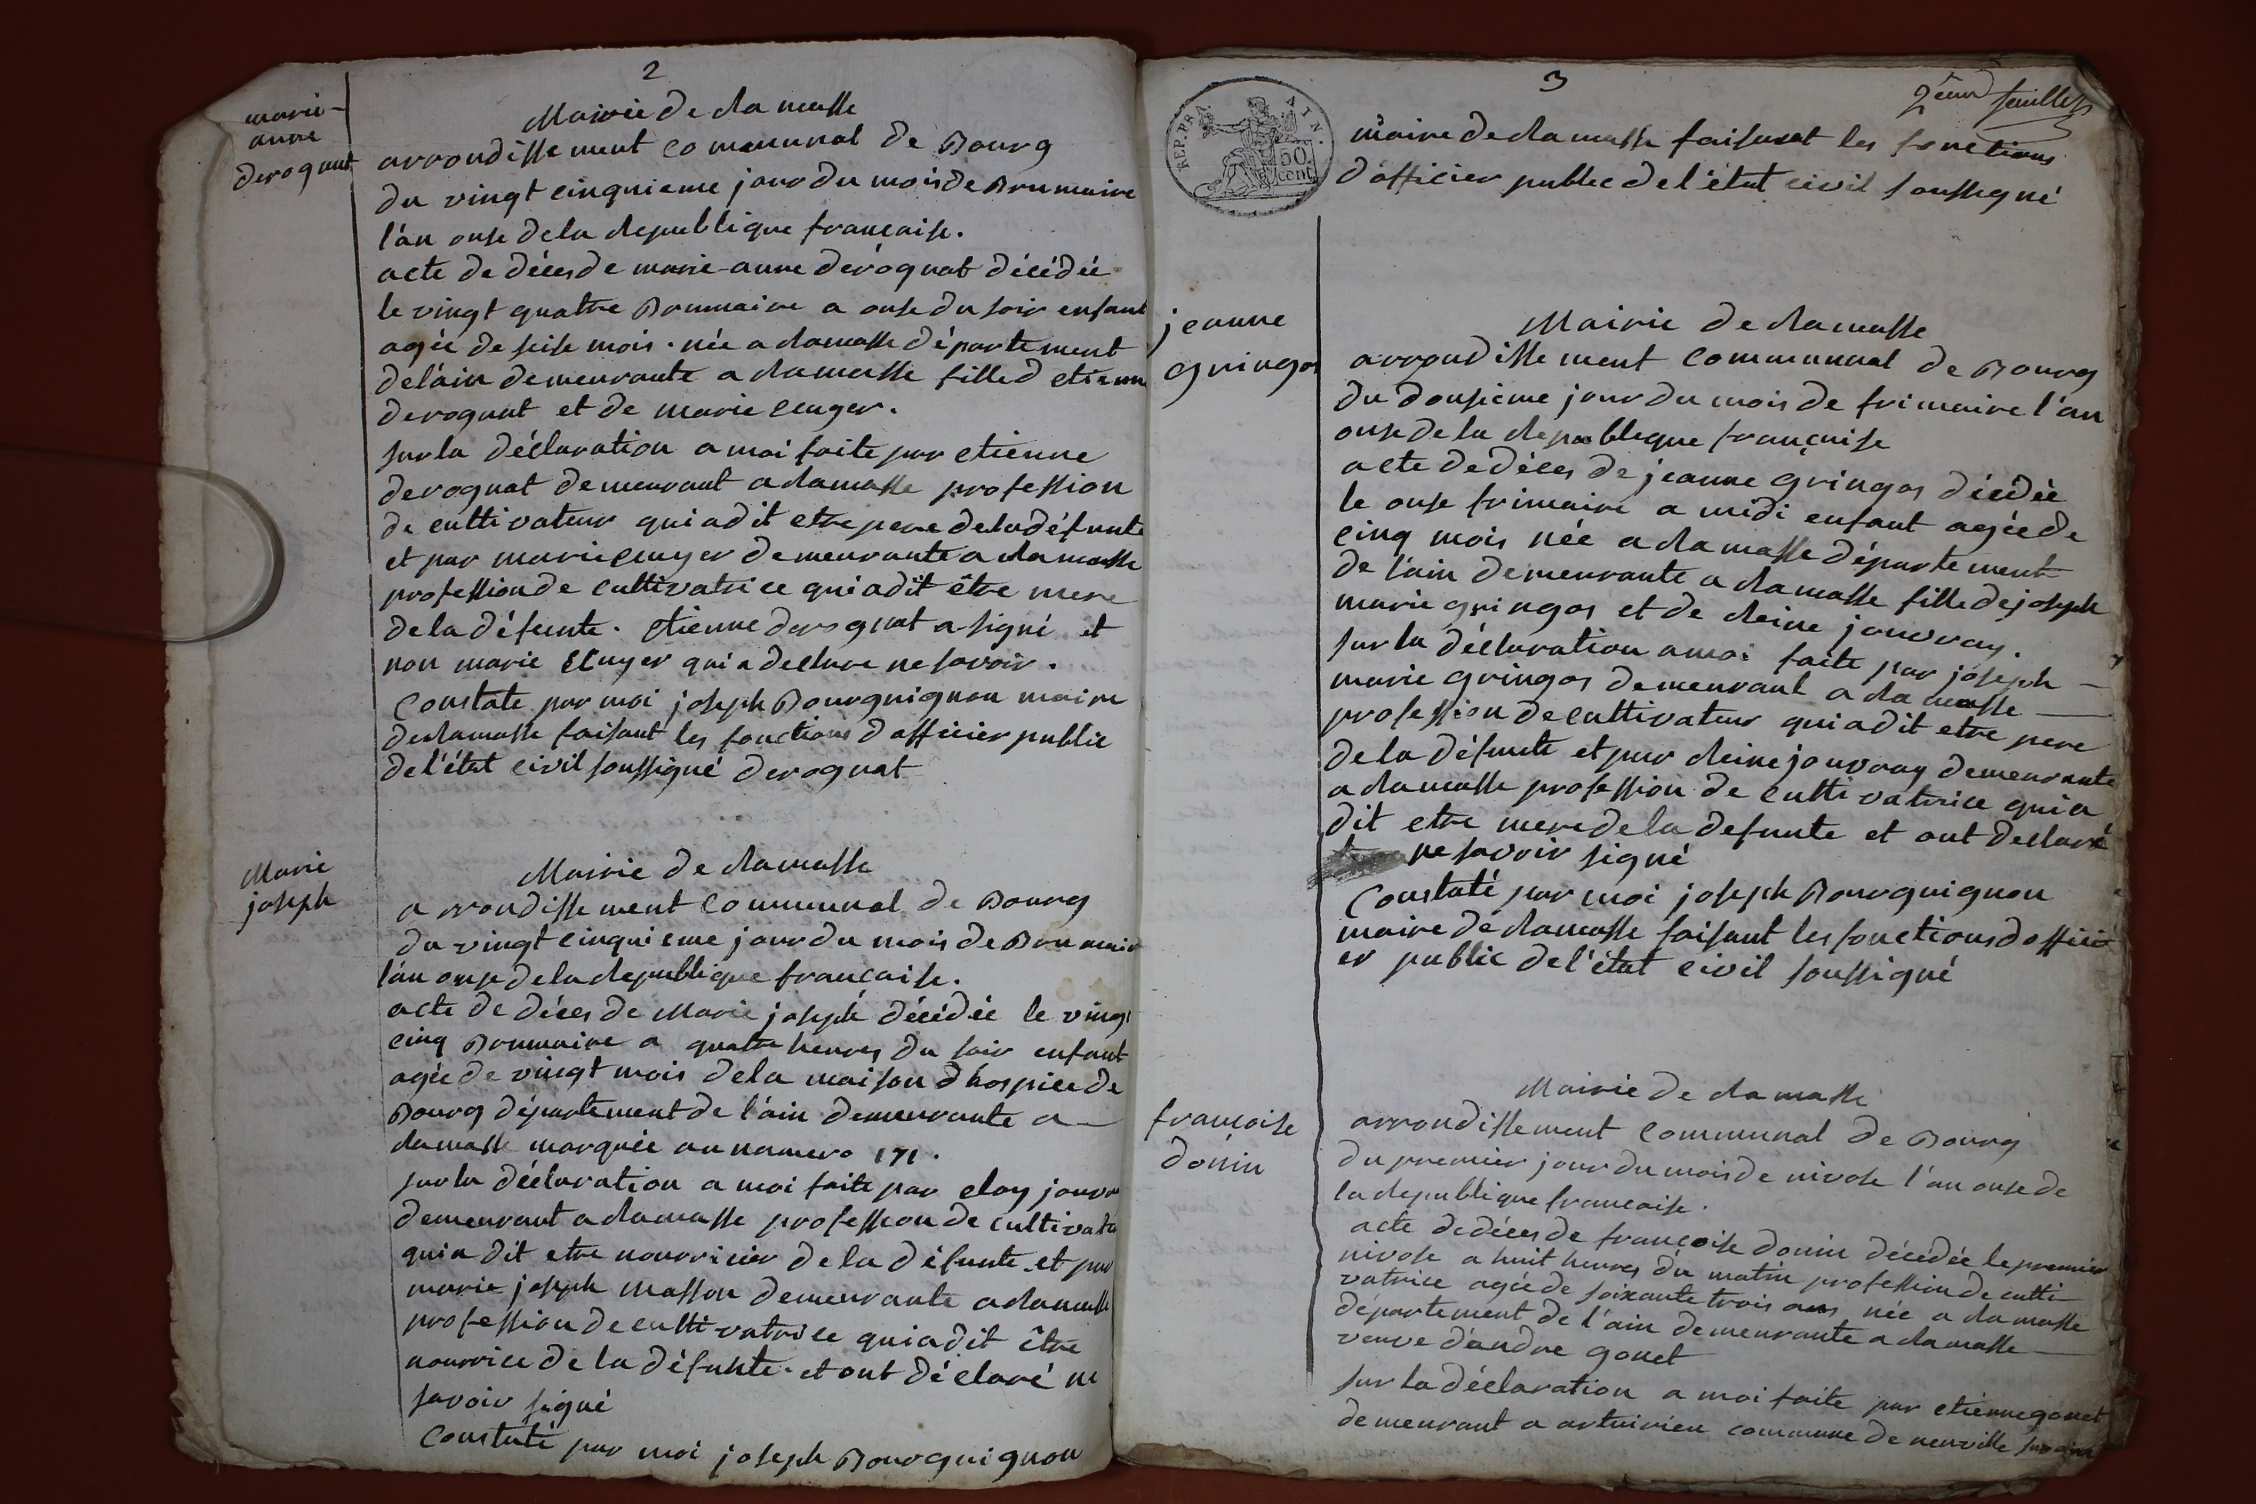 2
marie-
anne
derognat
Mairie de damasse
arrondissement communal de Bourg
du vingt cinquieme jour du mois de Brumaire
l'an onse de la republique francaise.
acte de décès de marie-anne derognat décédée
le vingt quatre Brumaire a onse du soir enfant
agée de seise mois. née a damasse département
de l'ain demeurante a damasse fille d etienne
derognat et de marie
sur la déclaration a moi faite par etienne
derognat demeurant a damasse profession
de cultivateur qui a dit etre pere de la défunte
et par marie demeurante a damasse
profession de cultivatrice qui a dit être mere
de la défunte. etienne derognat a signé et
non marie qui a declare ne savoir.
Constate par moi joseph Bourguignon maire
de damasse faisant les fonctions d officier public
de l'état civil soussigné derognat
Marie
joseph
Mairie de damasse
arrondissement communal de Bourg
du vingt cinquieme jour du mois de Brumaire
l'an onse de la republique francaise.
acte de décès de Marie joseph décédée le vingt
cinq Brumaire a quatre heures du soir enfant
agée de vingt mois de la maison d'hospice de
Bourg département de l'ain demeurante a
damasse marquée au numero 171.
sur la déclaration a moi faite par eloy
demeurant a damasse profession de cultivateur
qui a dit etre nourricier de la défunte et par
marie joseph masson demeurante a damasse
profession de cultivatrice qui a dit être
nourrice de la défunte. et ont déclaré ne
savoir signé
Constaté par moi joseph Bourguignon
3
2eme feuillet
REP. FRA. AIN.
50
cent.
maire de damasse faisant les fonctions
d'officier public de l'état civil soussigné
jeanne
gringos
Mairie de damasse
arrondissement communal de Bourg
du dousieme jour du mois de frimaire l'an
onse de la republique française
acte de décès de jeanne gringos décédée
le onse frimaire a midi enfant agée de
cinq mois née a damasse département
de l'ain demeurante a damasse fille de joseph
marie gringos et de deine jouvray.
sur la déclaration a moi faite par joseph
marie gringos demeurant a damasse
profession de cultivateur qui a dit etre pere
de la défunte et par deine jouvray demeurante
a damasse profession de cultivatrice qui a
dit etre mere de la defunte et ont declaré
ne savoir signé
Constaté par moi joseph Bourguignon
maire de damasse faisant les fonctions d offici
er public de l'état civil soussigné
françoise
donin
Mairie de damasse
arrondissement communal de Bourg
du premier jour du mois de nivose l'an onse de
la republique francaise.
acte de décès de françoise donin décédée le premier
nivose a huit heures du matin profession de culti
vatrice agée de soixante trois ans née a damasse
département de l'ain demeurante a damasse
veuve d'andre gonet
sur la déclaration a moi faite par etienne gonet
demeurant a commune de neuville sur ain